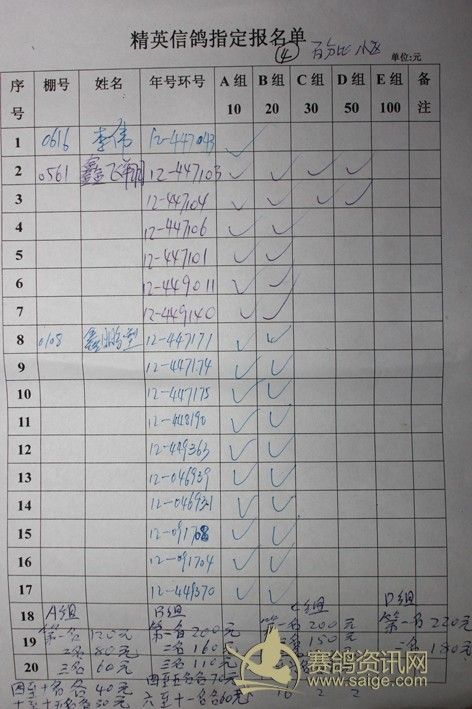 精英信鸽指定报名单
④ 百分比 小区
单位:元
序号 棚号 姓名 年号环号 A组10 B组20 C组30 D组50 E组100 备注
1 0616 李伟 12-447043 ✓
2 0561 鑫飞翔 12-447103 ✓ ✓ ✓ ✓
3 12-447104 ✓ ✓ ✓ ✓
4 12-447106 ✓ ✓
5 12-447101 ✓ ✓
6 12-449011 ✓ ✓
7 12-449140 ✓ ✓
8 0108 12-447171 ✓ ✓
9 12-447174 ✓ ✓
10 12-447175 ✓ ✓
11 12-448190 ✓ ✓
12 12-449363 ✓ ✓
13 12-046939 ✓ ✓
14 ✓ ✓
15 ✓ ✓
16 12-091704 ✓ ✓
17 12-449370 ✓ ✓
18 A组 B组 C组 D组
第一名120元 第一名200元 第一名200元 第一名220元
19 二名80元 二名160元 二名150元 二名180元
20 三名60元 三名110元
四至十名各40元 四至五名各70元
十至十五名各30元 六至十一名各60元 16 2 2
赛鸽资讯网
www.saige.com